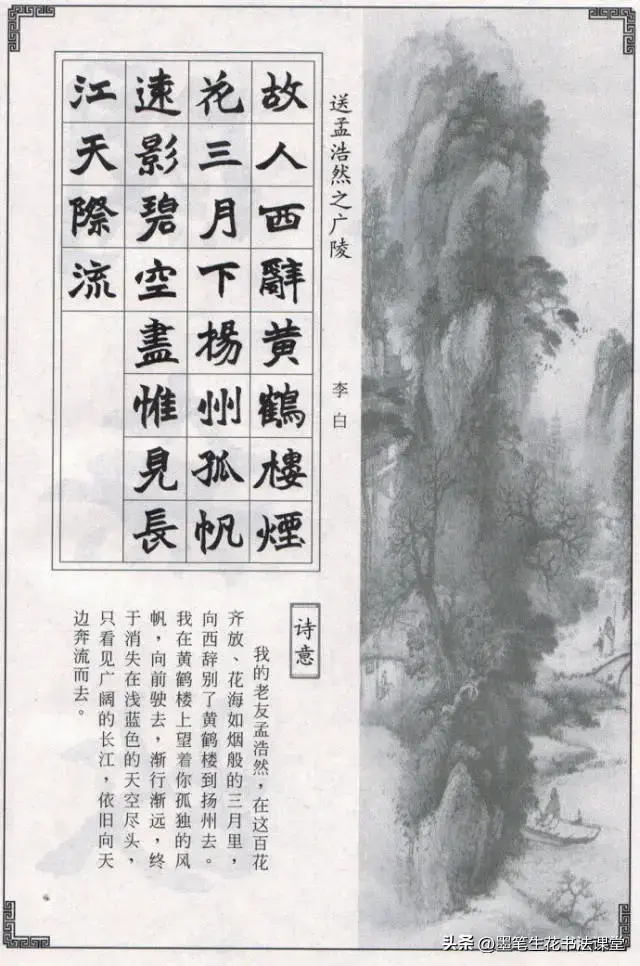 送孟浩然之广陵
李白
故人西辭黄鶴樓煙
花三月下揚州孤帆
遠影碧空盡惟見長
江天際流
诗意
我的老友孟浩然，在这百花
齐放、花海如烟般的三月里，
向西辞别了黄鹤楼到扬州去。
我在黄鹤楼上望着你孤独的风
帆，向前驶去，渐行渐远，终
于消失在浅蓝色的天空尽头，
只看见广阔的长江，依旧向天
边奔流而去。
头条 @墨笔生花书法课堂